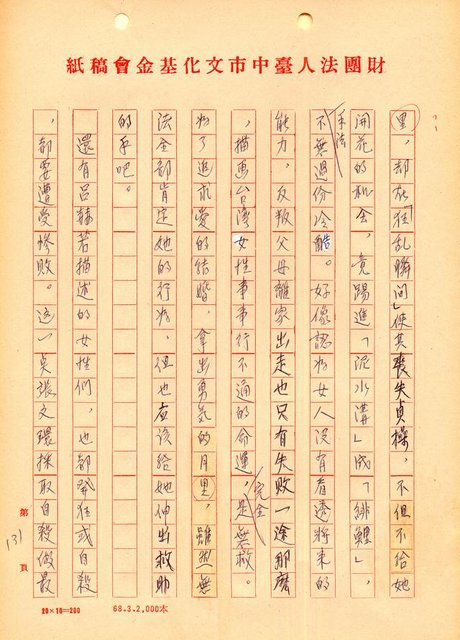 財團法人臺中市文化基金會稿紙
里，却在「狂乱瞬间」使其喪失貞操，不但不给她
開花的机会，竟踢進「泥水溝」成「緋鯉」，
手法
不無過份冷酷。好像認为女人没有看透将来的
能力，反叛父母離家出走也只有失敗一途那麽
，描画台湾女性事事行不通的命運，是無救。
完全
为了追求愛的結婚，拿出勇気的月里，雖然無
法全部肯定她的行为，但也应該给她伸出救助
的手吧。
還有呂赫若描述的女性們，也都発狂或自殺
，都要遭受慘敗。這一点張文環採取自殺做最
第 131 頁
20×10=200
68.3.2,000本